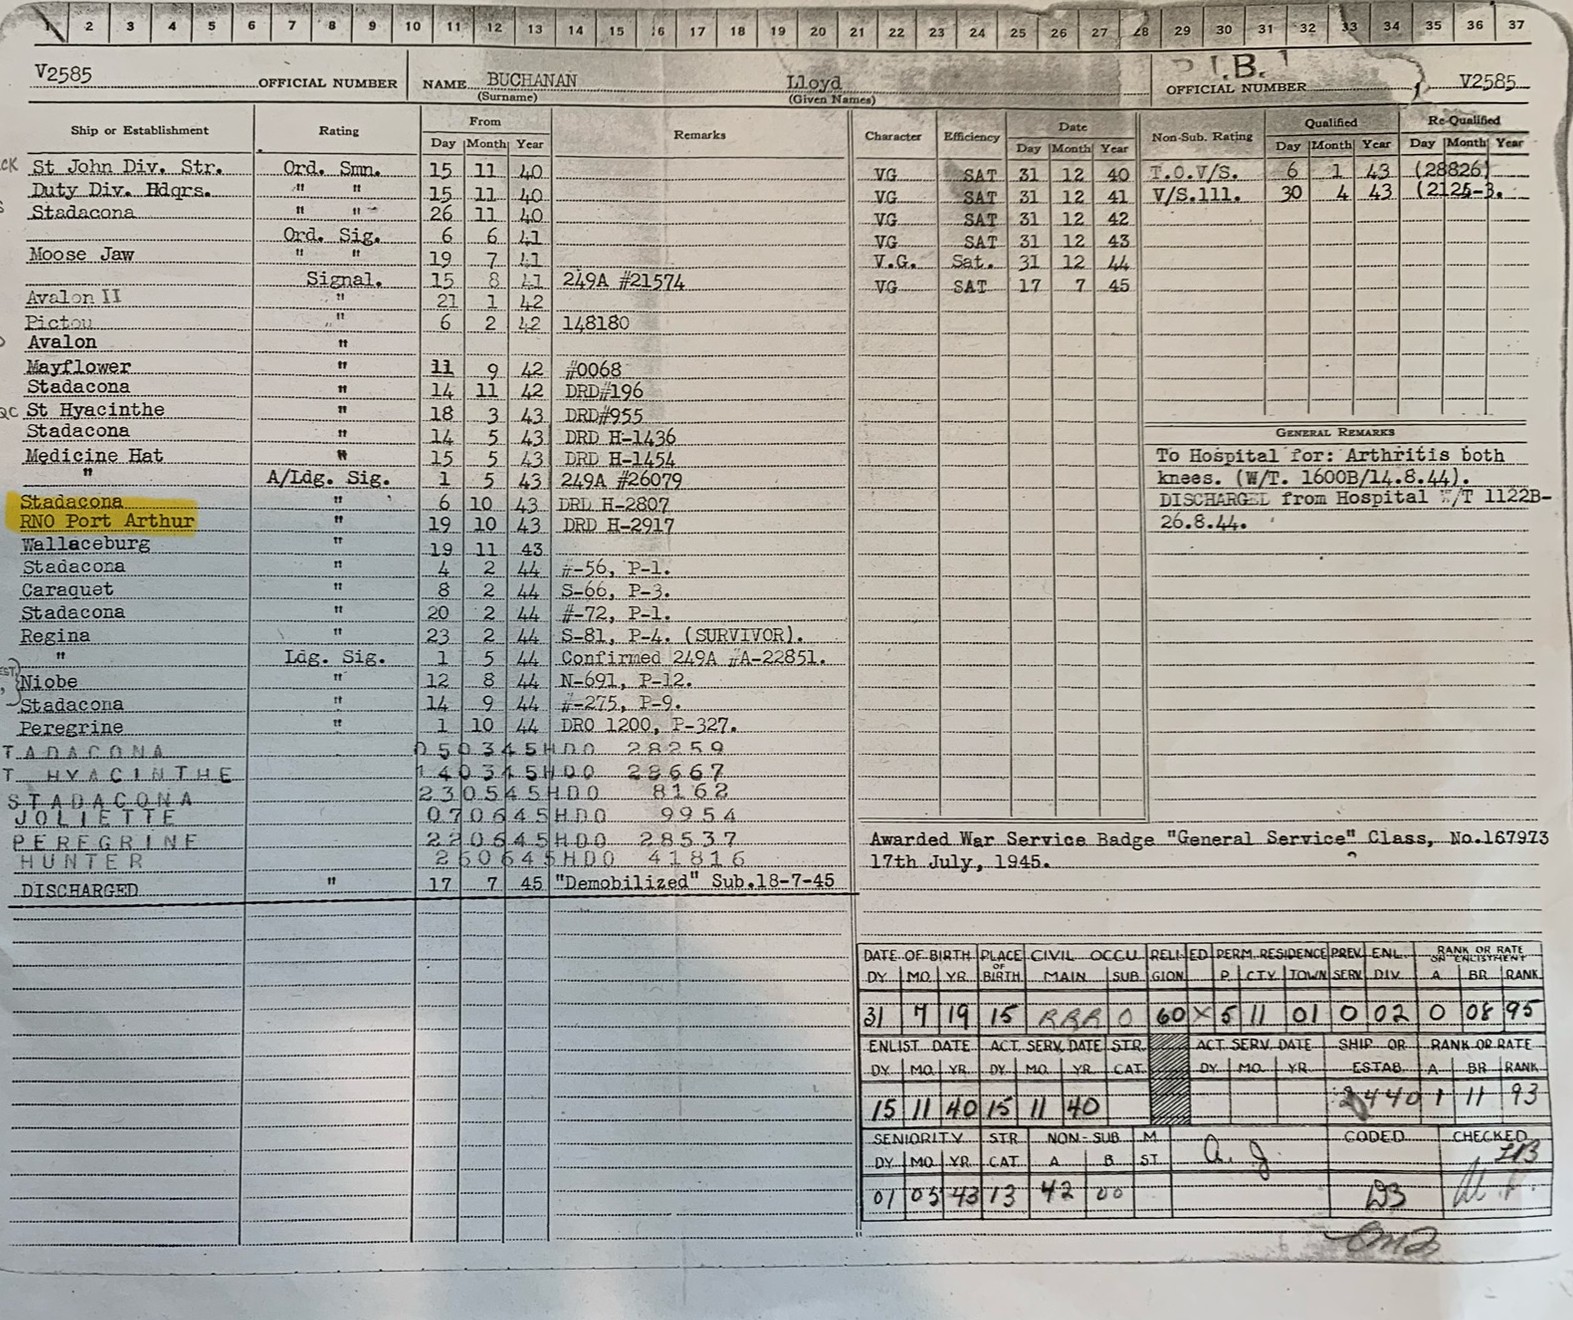 1 2 3 4 5 6 7 8 9 10 11 12 13 14 15 16 17 18 19 20 21 22 23 24 25 26 27 28 29 30 31 32 33 34 35 36 37
V2585 OFFICIAL NUMBER NAME BUCHANAN Lloyd OFFICIAL NUMBER V2585
(Surname) (Given Names)
Ship or Establishment Rating From Remarks
Day Month Year
CK St John Div. Str. Ord. Smn. 15 11 40
Duty Div. Hdqrs. " " 15 11 40
Stadacona " " 26 11 40
Ord. Sig. 6 6 41
Moose Jaw " " 19 7 41
Signal. 15 8 41 249A #21574
Avalon II " 21 1 42
Pictou " 6 2 42 148180
Avalon "
Mayflower " 11 9 42 #0068
Stadacona " 14 11 42 DRD#196
QC St Hyacinthe " 18 3 43 DRD#955
Stadacona " 14 5 43 DRD H-1436
Medicine Hat " 15 5 43 DRD H-1454
" A/Ldg. Sig. 1 5 43 249A #26079
Stadacona " 6 10 43 DRD H-2807
RNO Port Arthur " 19 10 43 DRD H-2917
Wallaceburg " 19 11 43
Stadacona " 4 2 44 #-56, P-1.
Caraquet " 8 2 44 S-66, P-3.
Stadacona " 20 2 44 #-72, P-1.
Regina " 23 2 44 S-81, P-4. (SURVIVOR).
" Ldg. Sig. 1 5 44 Confirmed 249A #A-22851.
Niobe " 12 8 44 N-691, P-12.
Stadacona " 14 9 44 #-275, P-9.
Peregrine " 1 10 44 DRO 1200, P-327.
TADACONA 050345HDO 28259
T HYACINTHE 140345HDO 28667
STADACONA 230545HDO 8162
JOLIETTE 070645HDO 9954
PEREGRINE 220645HDO 28537
HUNTER 260645HDO 41816
DISCHARGED " 17 7 45 "Demobilized" Sub.18-7-45
Character Efficiency Date
Day Month Year
VG SAT 31 12 40
VG SAT 31 12 41
VG SAT 31 12 42
VG SAT 31 12 43
V.G. Sat. 31 12 44
VG SAT 17 7 45
Non-Sub. Rating Qualified Re-Qualified
Day Month Year Day Month Year
T.O.V/S. 6 1 43 (28826)
V/S.111. 30 4 43 (2125-3.
GENERAL REMARKS
To Hospital for: Arthritis both
knees. (W/T. 1600B/14.8.44).
DISCHARGED from Hospital W/T 1122B-
26.8.44.
Awarded War Service Badge "General Service" Class, No.167973
17th July, 1945.
DATE OF BIRTH PLACE OF BIRTH CIVIL OCCU RELI-GION ED PERM. RESIDENCE PREV. SERV. ENL. DIV. RANK OR RATE ON ENLISTMENT
DY. MO. YR. MAIN SUB P. CTY. TOWN A BR RANK
31 7 19 15 RRR 0 60 X 5 11 01 0 02 0 08 95
ENLIST DATE ACT. SERV. DATE STR. CAT. ACT SERV. DATE SHIP OR ESTAB. RANK OR RATE
DY. MO. YR. DY. MO. YR. DY. MO. YR. A BR RANK
15 11 40 15 11 40 2440 1 11 93
SENIORITY STR CAT. NON-SUB M ST. CODED CHECKED
DY. MO. YR. A B
01 05 43 13 42 00